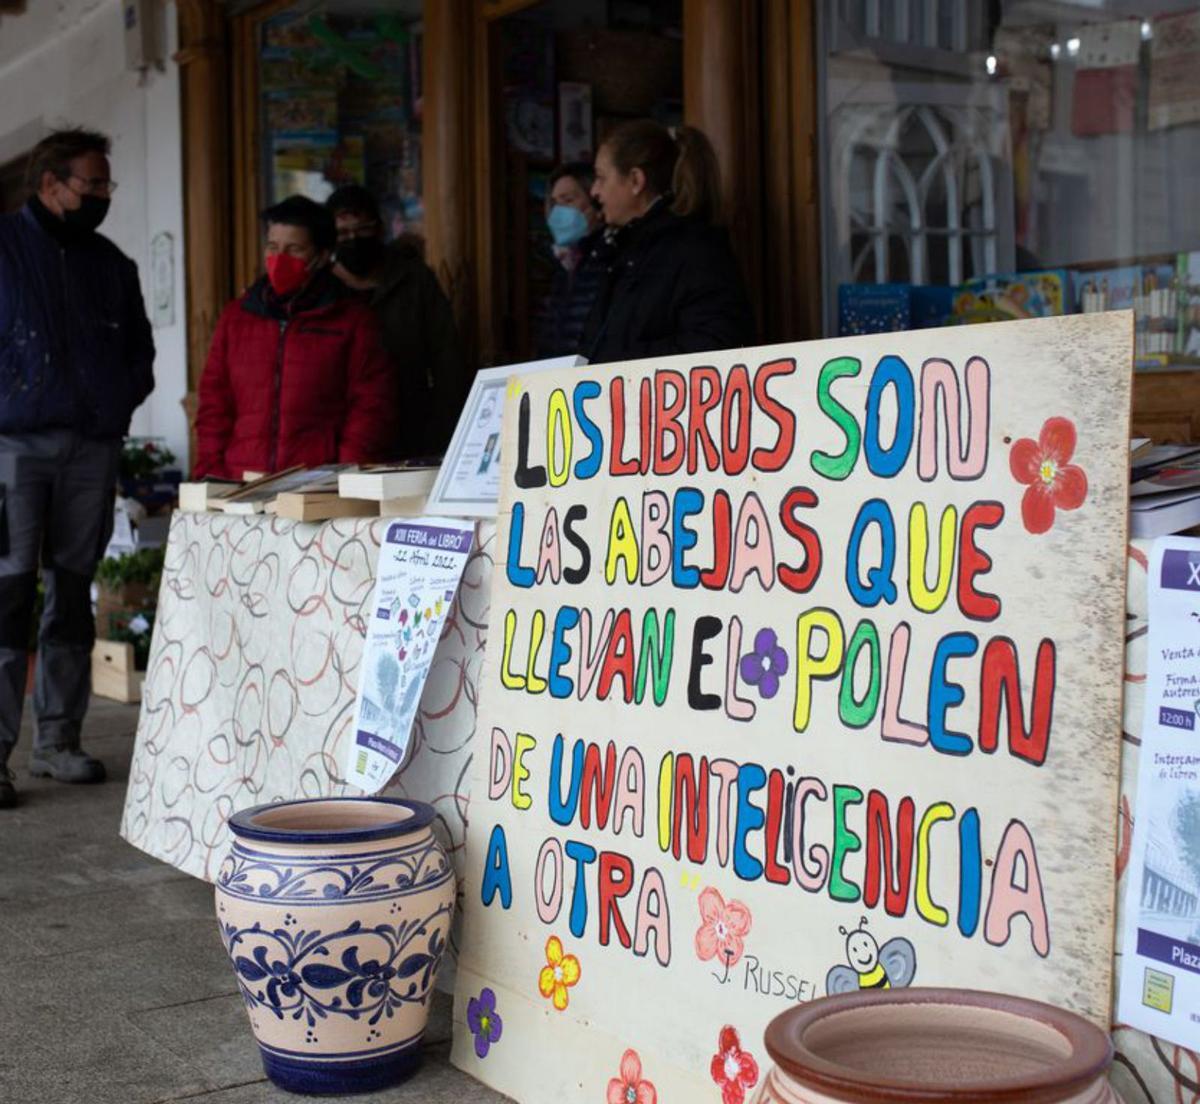 "LOS LIBROS SON
LAS ABEJAS QUE
LLEVAN EL POLEN
DE UNA INTELIGENCIA
A OTRA"
J. RUSSEL
XIII FERIA del LIBRO
-22 Abril 2022-
X
Venta
Firma
autores
12:00 h
de libros
Plaza